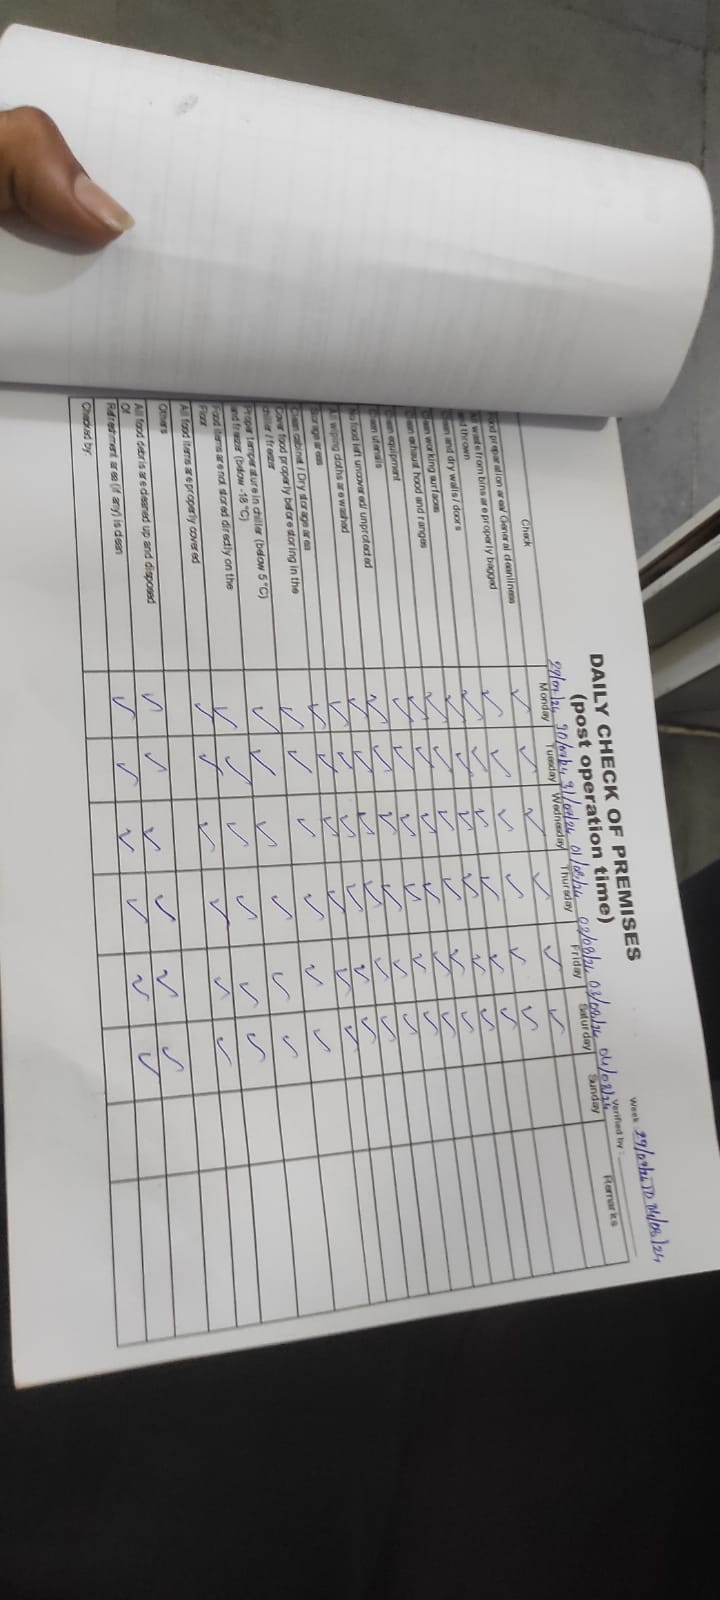 DAILY CHECK OF PREMISES
(post operation time)
Week: 29/07/24 TO 04/08/24
Verified by :
29/07/24 30/07/24 31/07/24 01/08/24 02/08/24 03/08/24 04/08/24
Check Monday Tuesday Wednesday Thursday Friday Saturday Sunday Remarks
Food preparation area/ General cleanliness ✓ ✓ ✓ ✓ ✓ ✓
All waste from bins are properly bagged
and thrown ✓ ✓ ✓ ✓ ✓ ✓
Clean and dry walls / doors ✓ ✓ ✓ ✓ ✓ ✓
Clean working surfaces ✓ ✓ ✓ ✓ ✓ ✓
Clean exhaust hood and ranges ✓ ✓ ✓ ✓ ✓ ✓
Clean equipment ✓ ✓ ✓ ✓ ✓ ✓
Clean utensils ✓ ✓ ✓ ✓ ✓ ✓
No food left uncovered/ unprotected ✓ ✓ ✓ ✓ ✓ ✓
All wiping cloths are washed ✓ ✓ ✓ ✓ ✓ ✓
Storage areas
Clean cabinet / Dry storage area ✓ ✓ ✓ ✓ ✓ ✓
Cover food properly before storing in the
chiller / freezer ✓ ✓ ✓ ✓ ✓ ✓
Proper temperature in chiller (below 5°C)
and freezer (below -18 °C) ✓ ✓ ✓ ✓ ✓ ✓
Food items are not stored directly on the
Floor ✓ ✓ ✓ ✓ ✓ ✓
All food items are properly covered
Others
All food debris are cleaned up and disposed
Of ✓ ✓ ✓ ✓ ✓ ✓
Refreshment area (if any) is clean ✓ ✓ ✓ ✓ ✓ ✓
Checked by: